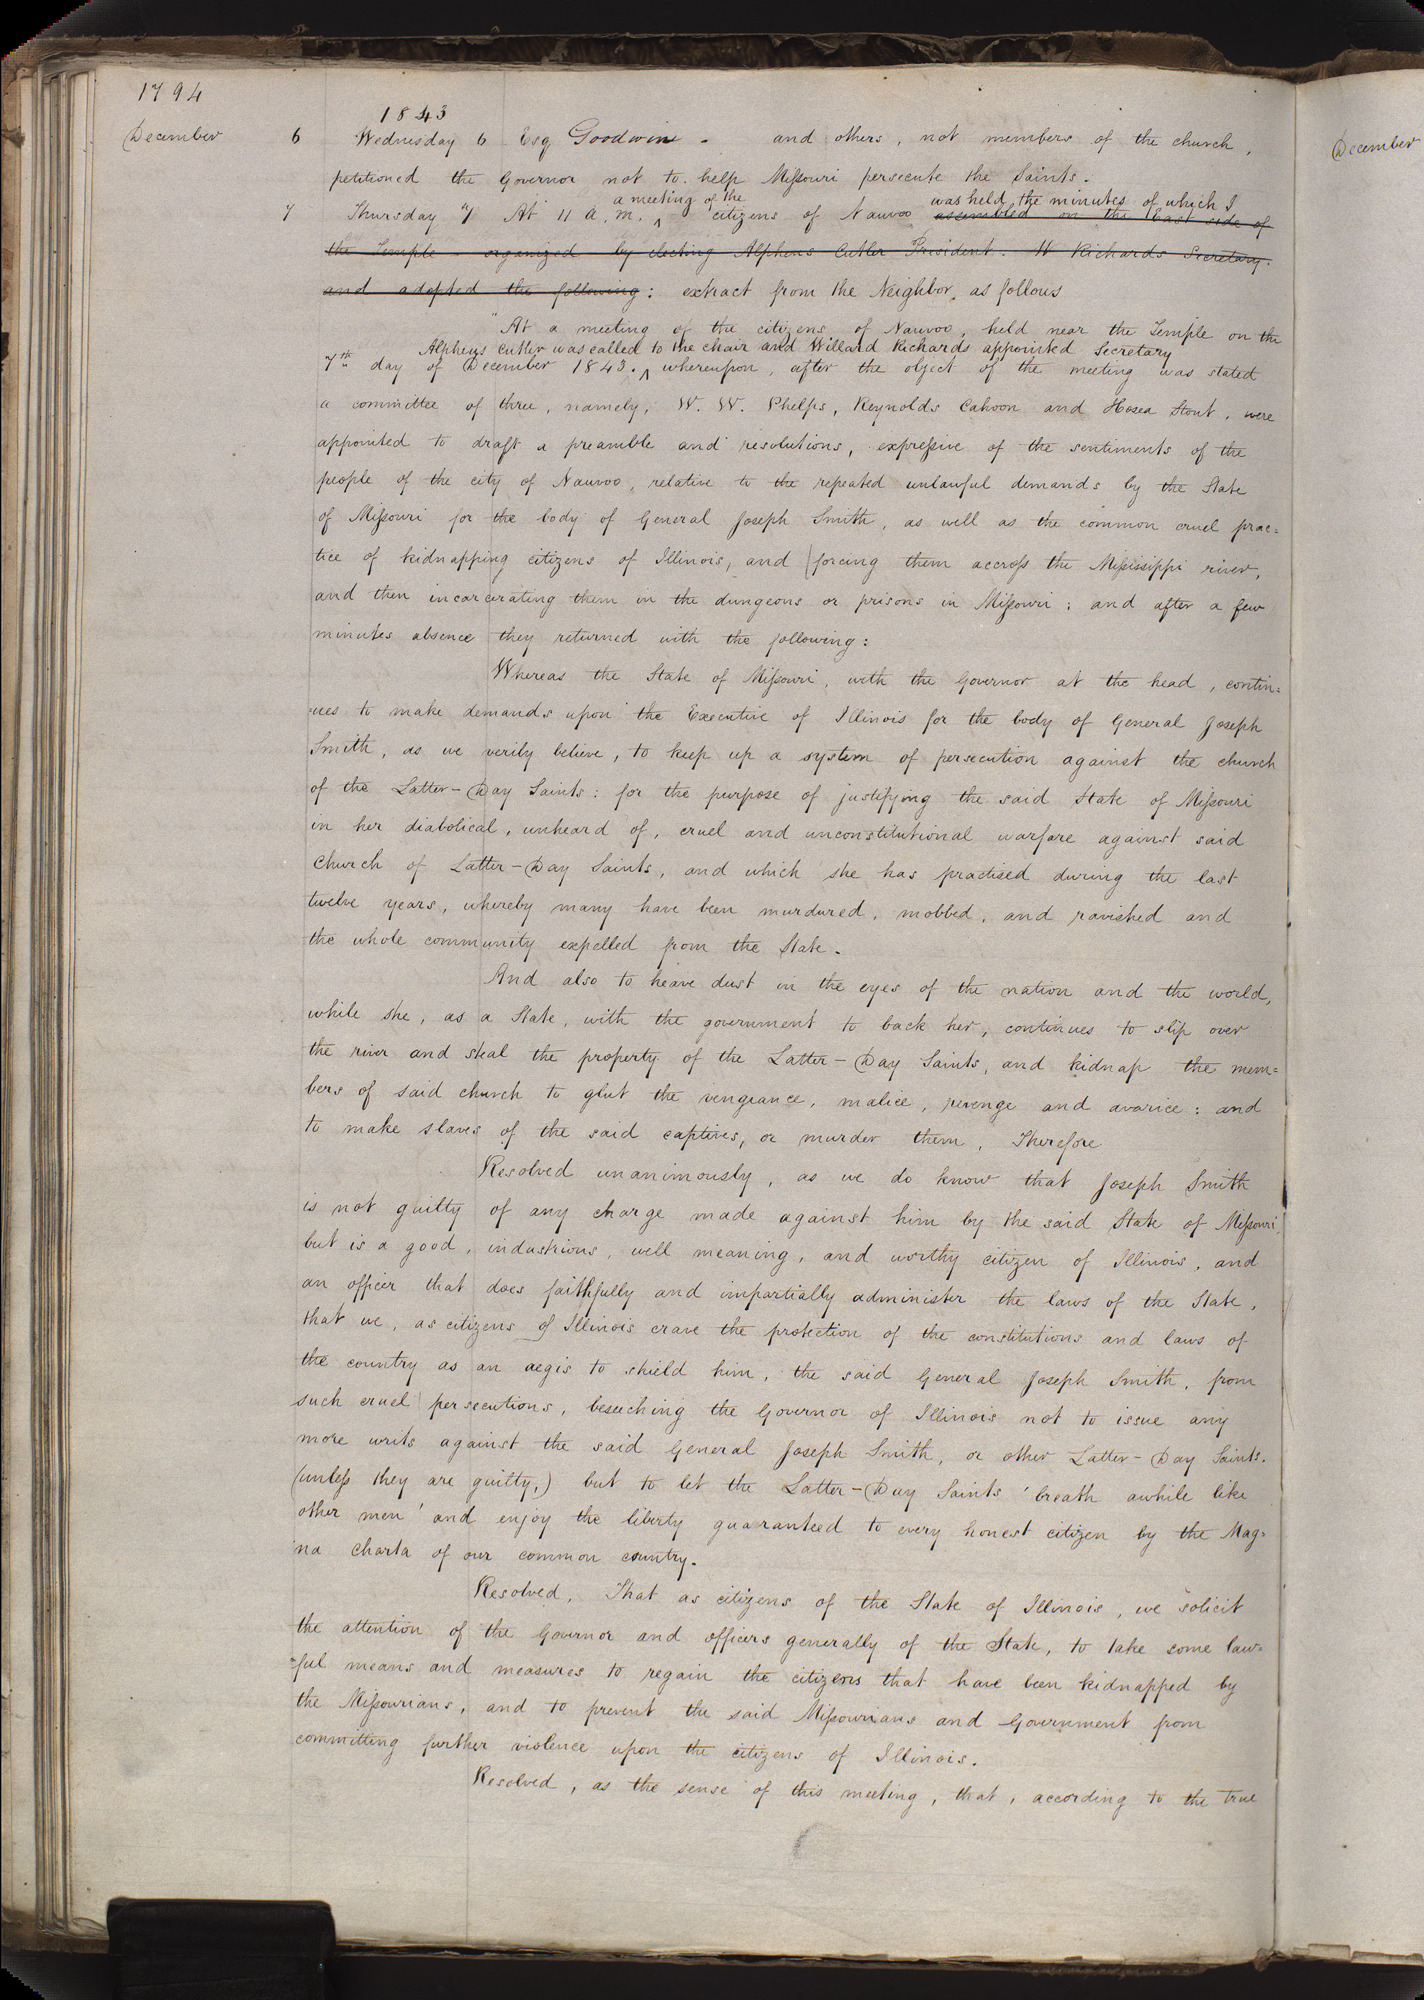 1794
1843
December 6 Wednesday 6 Esq Goodwin - and others, not members of the church,
petitioned the Governor not to help Missouri persecute the Saints.
a meeting of the was held, the minutes of which I
7 Thursday 7 At 11 A. M. ^ citizens of Nauvoo assembled on the East side of
the Temple - organized by electing Alpheus Cutler President. W Richards Secretary.
and adopted the following: extract from the Neighbor, as follows
"At a meeting of the citizens of Nauvoo, held near the Temple on the
Alpheus Cutler was called to the chair and Willard Richards appointed Secretary
7th day of December 1843. ^ whereupon, after the object of the meeting was stated
a committee of three, namely, W. W. Phelps, Reynolds Cahoon and Hosea Stout, were
appointed to draft a preamble and resolutions, expressive of the sentiments of the
people of the city of Nauvoo, relative to the repeated unlawful demands by the State
of Missouri for the body of General Joseph Smith, as well as the common cruel prac=
tice of kidnapping citizens of Illinois, and forcing them accross the Mississippi river,
and then incarcerating them in the dungeons or prisons in Missouri; and after a few
minutes absence they returned with the following:
Whereas the State of Missouri, with the Governor at the head, contin=
=ues to make demands upon the Executive of Illinois for the body of General Joseph
Smith, as we verily believe, to keep up a system of persecution against the church
of the Latter-Day Saints: for the purpose of justifying the said State of Missouri
in her diabolical, unheard of, cruel and unconstitutional warfare against said
Church of Latter-Day Saints, and which she has practised during the last
twelve years, whereby many have been murdured, mobbed, and ravished and
the whole community expelled from the State.
And also to heave dust in the eyes of the nation and the world,
while she, as a State, with the government to back her, continues to slip over
the river and steal the property of the Latter-Day Saints, and kidnap the mem=
bers of said church to glut the vengeance, malice, revenge and avarice: and
to make slaves of the said captives, or murder them. Therefore
Resolved unanimously, as we do know that Joseph Smith
is not guilty of any charge made against him by the said State of Missouri
but is a good, industrious, well meaning, and worthy citizen of Illinois, and
an officer that does faithfully and impartially administer the laws of the State,
that we, as citizens of Illinois crave the protection of the constitutions and laws of
the country as an aegis to shield him, the said General Joseph Smith, from
such cruel persecutions, beseeching the Governor of Illinois not to issue any
more writs against the said General Joseph Smith, or other Latter-Day Saints.
(unless they are guilty,) but to let the Latter-Day Saints 'breath awhile like
other men' and enjoy the liberty guaranteed to every honest citizen by the Mag=
na Charta of our common country.
Resolved, That as citizens of the State of Illinois, we solicit
the attention of the Governor and officers generally of the State, to take some law=
=ful means and measures to regain the citizens that have been kidnapped by
the Missourians, and to prevent the said Missourians and Government from
committing further violence upon the citizens of Illinois.
Resolved, as the sense of this meeting, that, according to the true
December